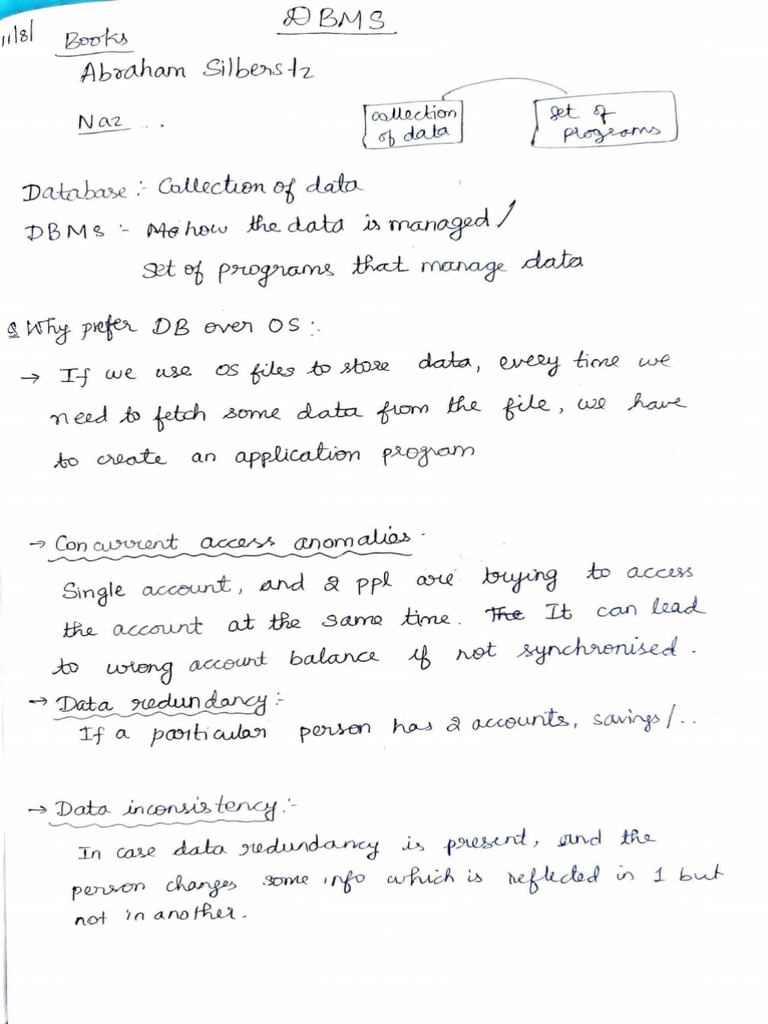 DBMS
11/8/
Books
Abraham Silberstz
Naz ...
collection of data
set of programs
Database :- Collection of data
DBMS :- how the data is managed /
set of programs that manage data
Q Why prefer DB over OS :-
→ If we use OS files to store data, every time we
need to fetch some data from the file, we have
to create an application program
→ Concurrent access anomalias -
Single account, and 2 ppl are trying to access
the account at the same time. The It can lead
to wrong account balance if not synchronised.
→ Data redundancy :-
If a particular person has 2 accounts, savings/..
→ Data inconsistency :-
In case data redundancy is present, and the
person changes some info which is reflected in 1 but
not in another.